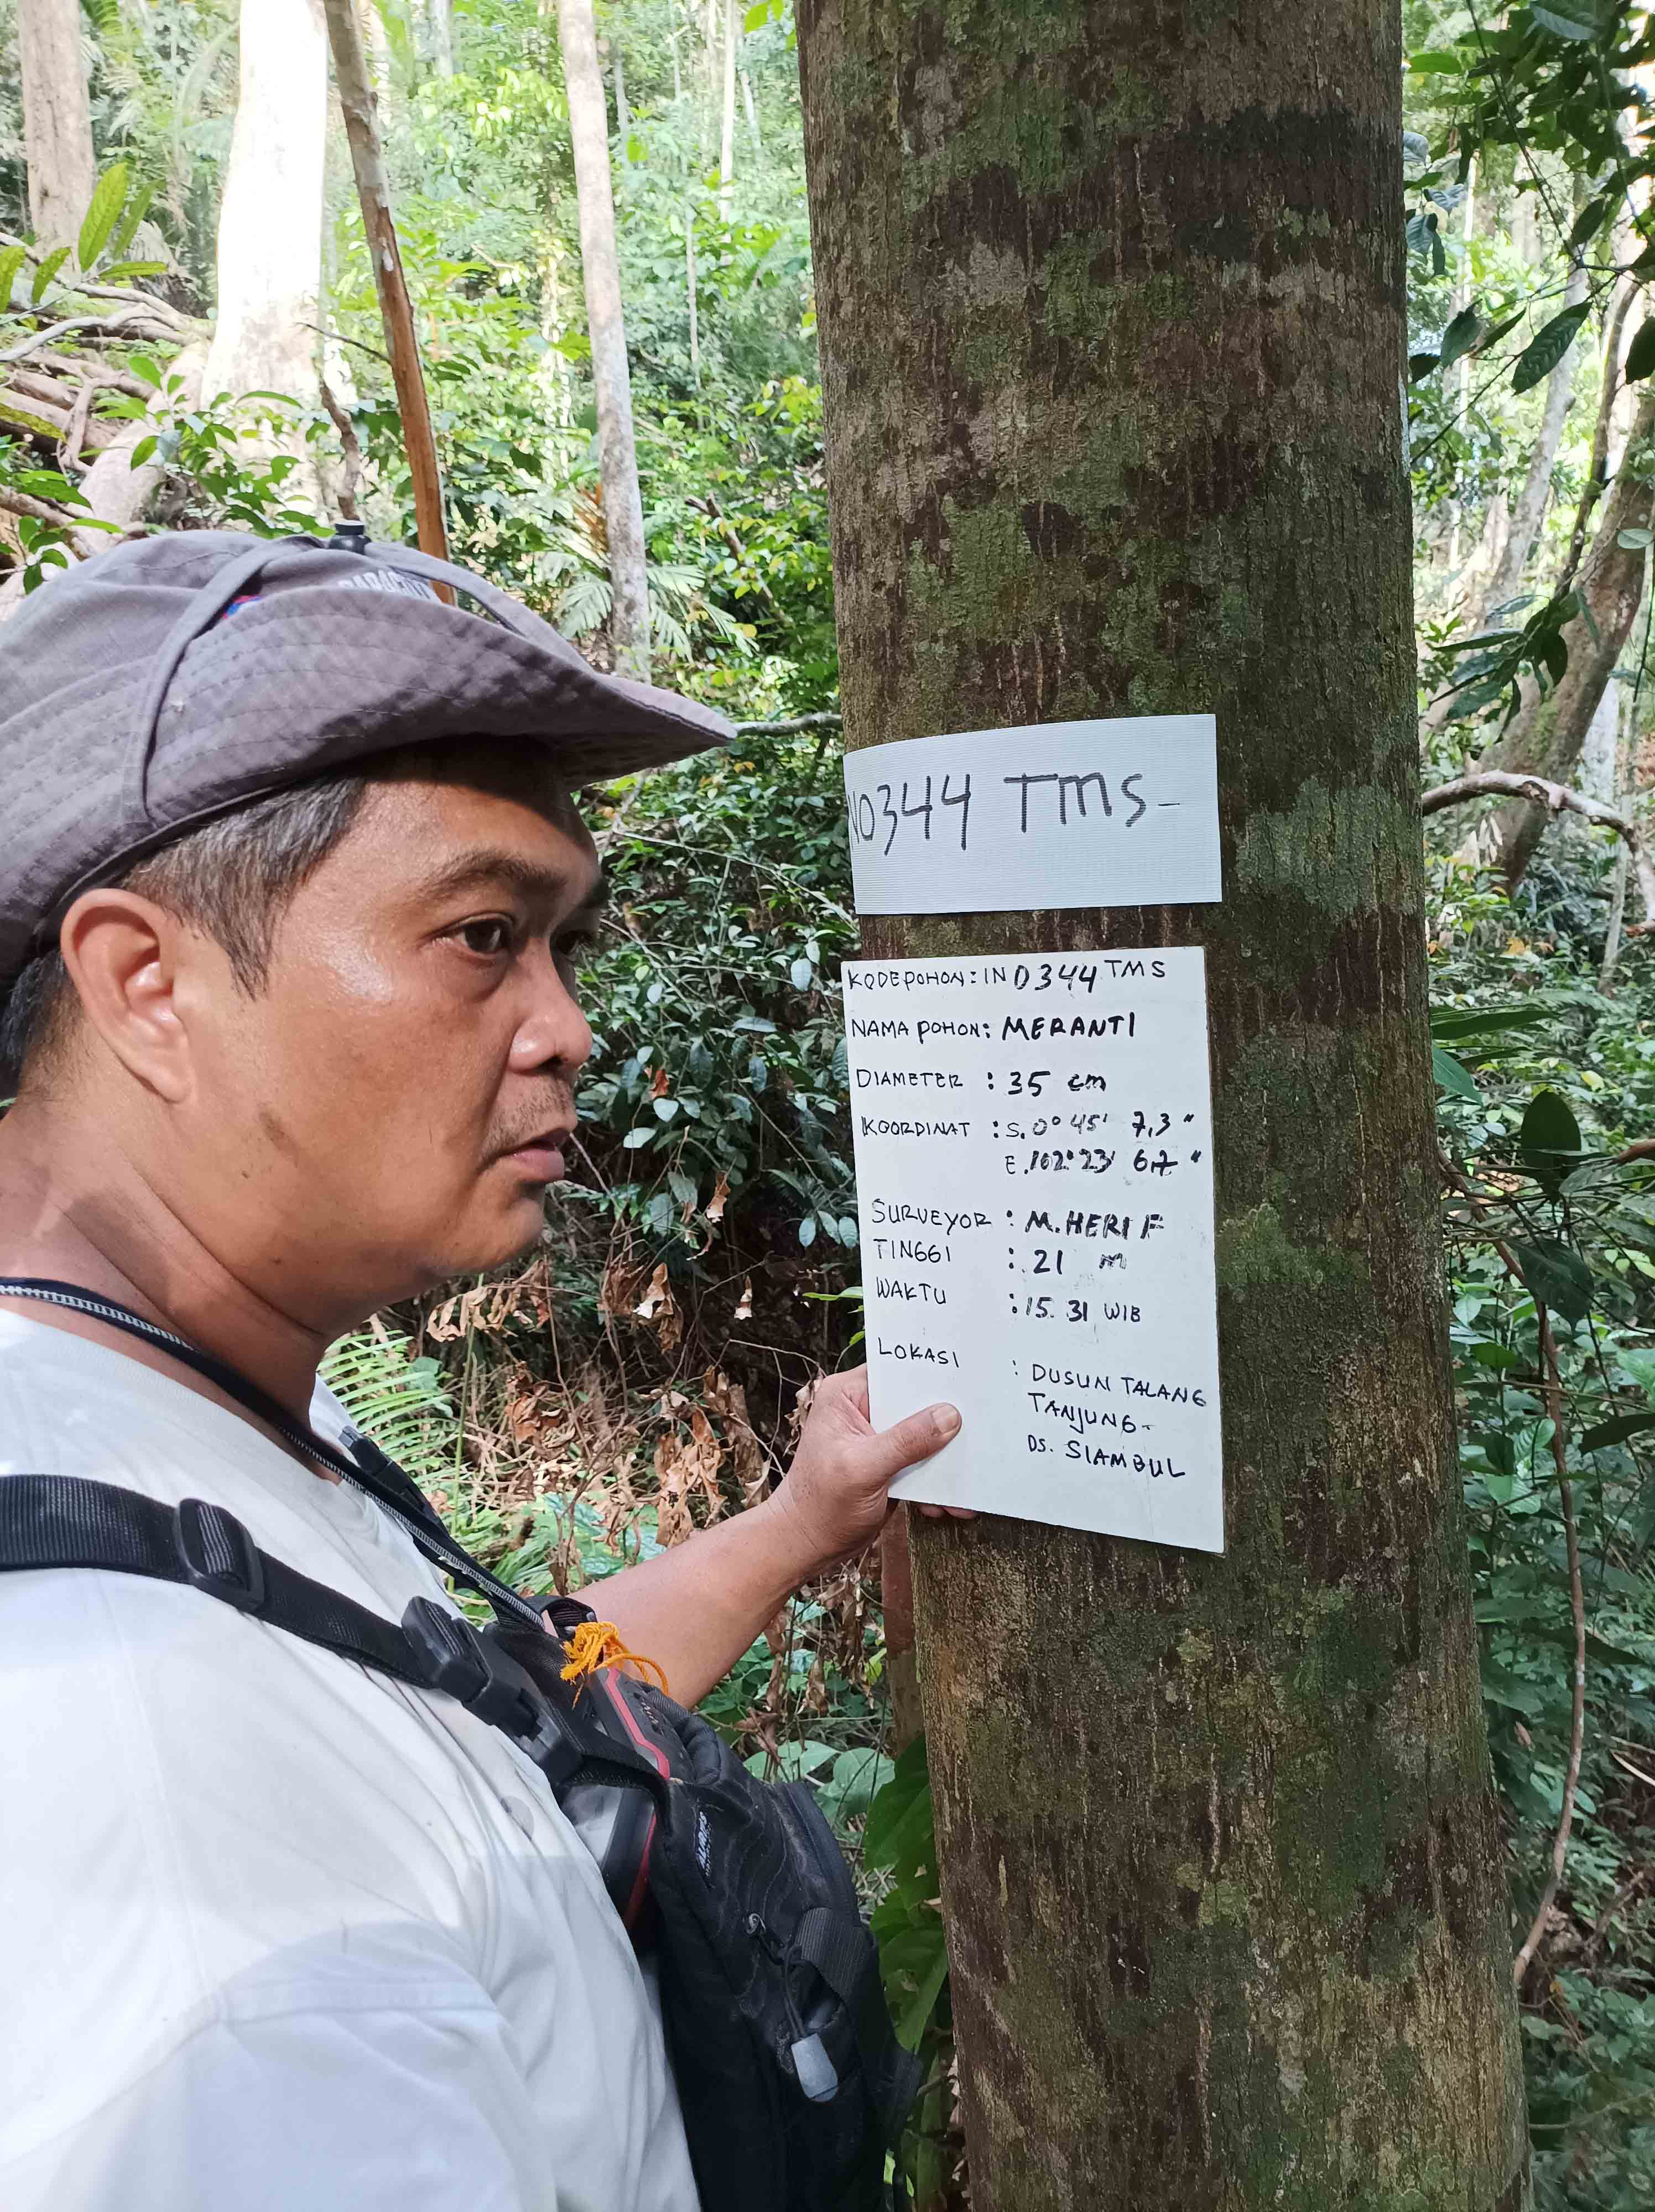 NO344 TMS-
KODE POHON: IN 0344 TMS
NAMA POHON: MERANTI
DIAMETER : 35 cm
KOORDINAT : S. 0° 45' 7,3"
E. 102° 23' 6,7"
SURVEYOR : M. HERI F
TINGGI : 21 m
WAKTU : 15. 31 WIB
LOKASI : DUSUN TALANG
TANJUNG-
DS. SIAMBUL